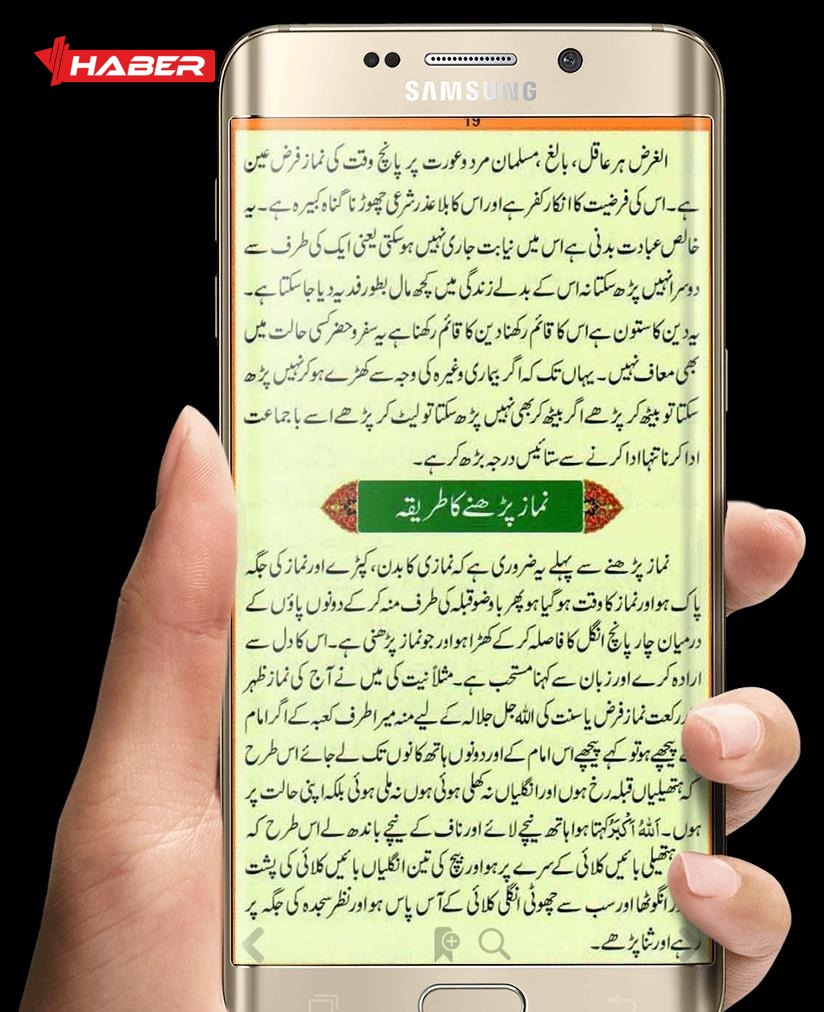 HABER
SAMSUNG
19
الغرض ہر عاقل، بالغ، مسلمان مرد و عورت پر پانچ وقت کی نماز فرض عین
ہے۔ اس کی فرضیت کا انکار کفر ہے اور اس کا بلا عذر شرعی چھوڑنا گناہ کبیرہ ہے۔ یہ
خالص عبادت بدنی ہے اس میں نیابت جاری نہیں ہو سکتی یعنی ایک کی طرف سے
دوسرا نہیں پڑھ سکتا نہ اس کے بدلے زندگی میں کچھ مال بطور فدیہ دیا جا سکتا ہے۔
یہ دین کا ستون ہے اس کا قائم رکھنا دین کا قائم رکھنا ہے یہ سفر و حضر کسی حالت میں
بھی معاف نہیں۔ یہاں تک کہ اگر بیماری وغیرہ کی وجہ سے کھڑے ہو کر نہیں پڑھ
سکتا تو بیٹھ کر پڑھے اگر بیٹھ کر بھی نہیں پڑھ سکتا تو لیٹ کر پڑھے اسے با جماعت
ادا کرنا تنہا ادا کرنے سے ستائیس درجہ بڑھ کر ہے۔
نماز پڑھنے کا طریقہ
نماز پڑھنے سے پہلے یہ ضروری ہے کہ نمازی کا بدن، کپڑے اور نماز کی جگہ
پاک ہو اور نماز کا وقت ہو گیا ہو پھر با وضو قبلہ کی طرف منہ کر کے دونوں پاؤں کے
درمیان چار پانچ انگل کا فاصلہ کر کے کھڑا ہو اور جو نماز پڑھنی ہے۔ اس کا دل سے
ارادہ کرے اور زبان سے کہنا مستحب ہے۔ مثلاً نیت کی میں نے آج کی نماز ظہر
رکعت نماز فرض یا سنت کی اللہ جل جلالہ کے لیے منہ میرا طرف کعبہ کے اگر امام
پیچھے ہو تو کہے پیچھے اس امام کے اور دونوں ہاتھ کانوں تک لے جائے اس طرح
کہ ہتھیلیاں قبلہ رخ ہوں اور انگلیاں نہ کھلی ہوئی ہوں نہ ملی ہوئی بلکہ اپنی حالت پر
ہوں۔ اَللّٰہُ اَکْبَرُ کہتا ہوا ہاتھ نیچے لائے اور ناف کے نیچے باندھ لے اس طرح کہ
ہتھیلی بائیں کلائی کے سرے پر ہو اور بیچ کی تین انگلیاں بائیں کلائی کی پشت
انگوٹھا اور سب سے چھوٹی انگلی کلائی کے آس پاس ہو اور نظر سجدہ کی جگہ پر
رہے اور ثنا پڑھے۔